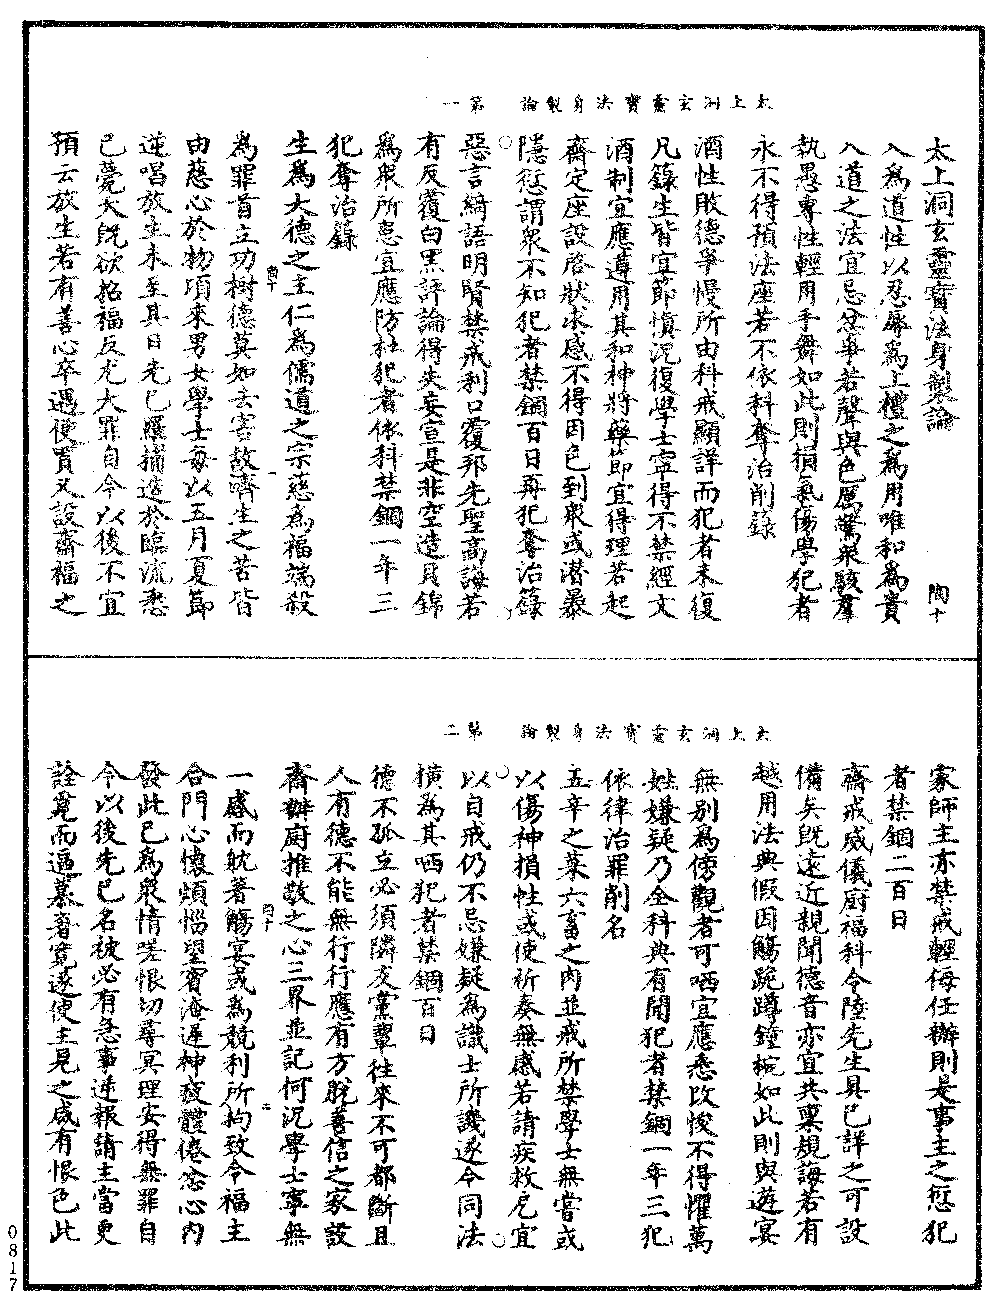 太上洞玄靈寶法身製論　第一
太上洞玄靈寶法身製論　陶十
入爲道性以忍辱爲上禮之爲用唯和爲貴
入道之法宜忌忿爭若聲與色厲驚衆駭羣
執愚專性輕用手舞如此則損氣傷學犯者
永不得預法座若不依科奪治削錄
酒性敗德爭慢所由科戒顯詳而犯者未復
凡錄生皆宜節慎況復學士寧得不禁經文
酒制宜應遵用其和神將藥節宜得理若起
齋定座設啓狀求感不得因色到衆或潛暴
隱愆謂衆不知犯者禁錮百日再犯奪治籙
惡言綺語明賢禁戒利口覆邦先聖高誨若
有反覆白黑評論得失妄宣是非空造貝錦
爲衆所患宜應防杜犯者依科禁錮一年三
犯奪治籙
生爲大德之主仁爲儒道之宗慈爲福端殺
爲罪首立功樹德莫如去害故濟生之苦皆
由慈心於物項來男女學士每以五月夏節
逆唱放生未至其日先已羅捕逮於臨流悉
已薨夭旣欲招福反尤大罪自今以後不宜
預云放生若有善心卒遇便買又設齋福之
太上洞玄靈寶法身製論　第二
家師主亦禁戒輕侮任辦則是事主之愆犯
者禁錮二百日
齋戒威儀廚福科令陸先生具已詳之可設
備矣旣遠近親聞德音亦宜共稟規誨若有
越用法典假因觴跪蹲鐘椀如此則與遊宴
無別爲傍觀者可哂宜應悉改悛不得懼萬
姓嫌疑乃全科典有聞犯者禁錮一年三犯
依律治罪削名
五辛之菜六畜之肉並戒所禁學士無嘗或
以傷神損性或使祈奏無感若請疾救危宜
以自戒仍不忌嫌疑爲識士所譏遂令同法
橫爲其哂犯者禁錮百日
德不孤立必須隣友黨輩往來不可都斷且
人有德不能無行行應有方脫善信之家設
齋辦廚推敬之心三界並記何況學士寧無
一感而躭著觴宴或爲競利所拘致令福主
合門心懷煩惱望賓淹遲神疲體倦忿心內
發此已爲衆情嗟恨切尋冥理安得無罪自
今以後先已名被必有急事逆報請主當更
詮覓而逼慕著寬遂使主見之咸有恨色此
0817